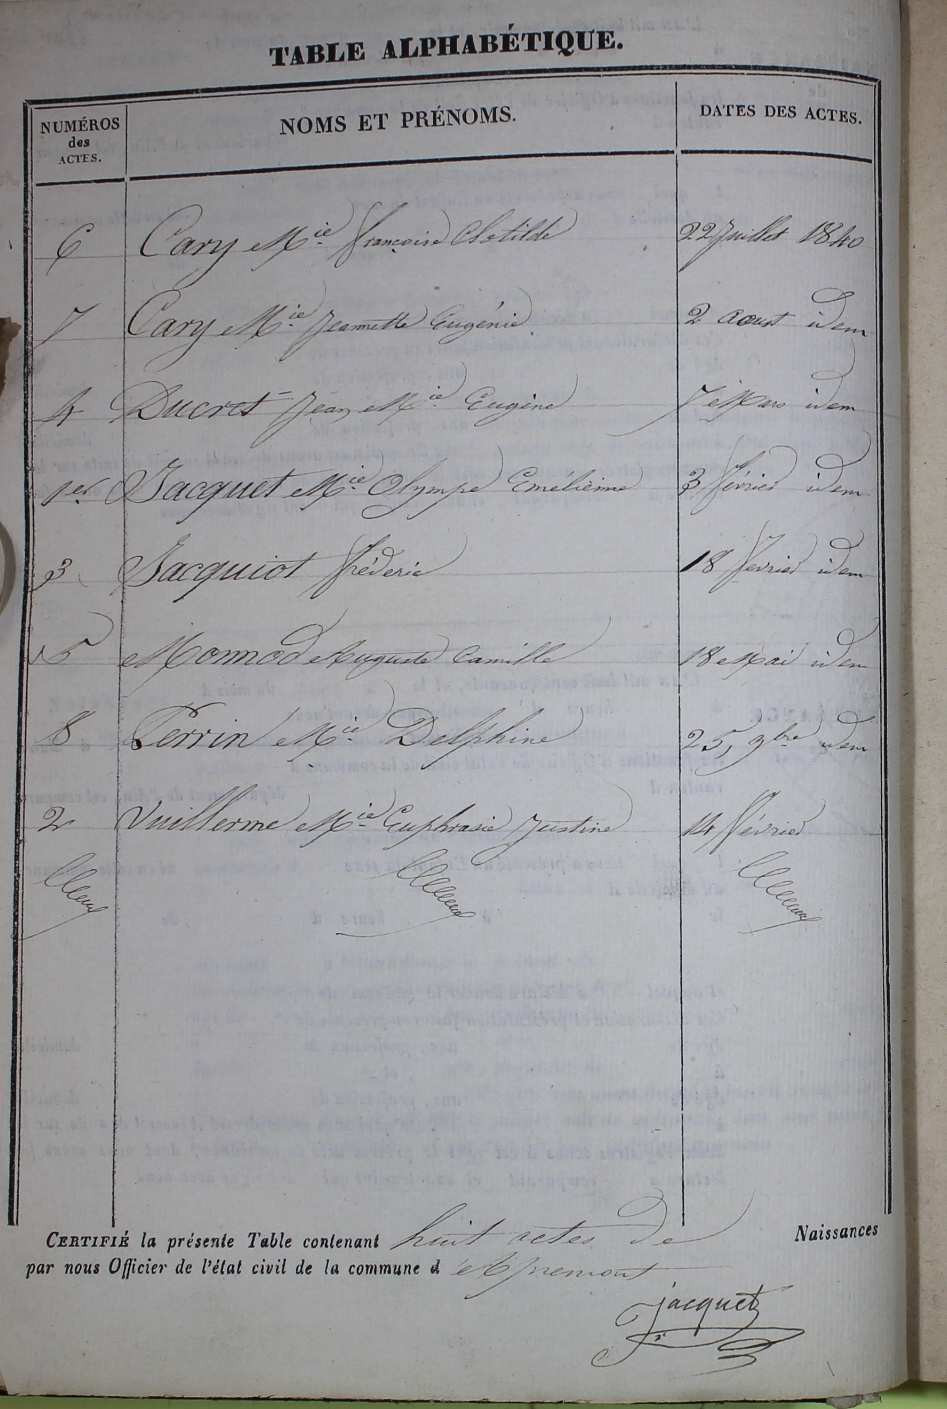 TABLE ALPHABÉTIQUE.
NUMÉROS des ACTES. NOMS ET PRÉNOMS. DATES DES ACTES.
6 Cary Mie françoise Clotilde 22 Juillet 1840
7 Cary Mie Jeannette Eugénie 2 aoust idem
4 Ducret Jean Mie Eugène 7 Mars idem
1er Jacquet Mie Olympe Emelienne 3 février idem
3 Jacquiot fréderic 18 fevrier idem
5 Monnod Auguste Camille 18 Mai idem
8 Perrin Mie Delphine 25, 9bre idem
2 Vuillerme Mie Euphrasie Justine 14 février
CERTIFIÉ la présente Table contenant huit actes de Naissances
par nous Officier de l'état civil de la commune d'Apremont
jacquet